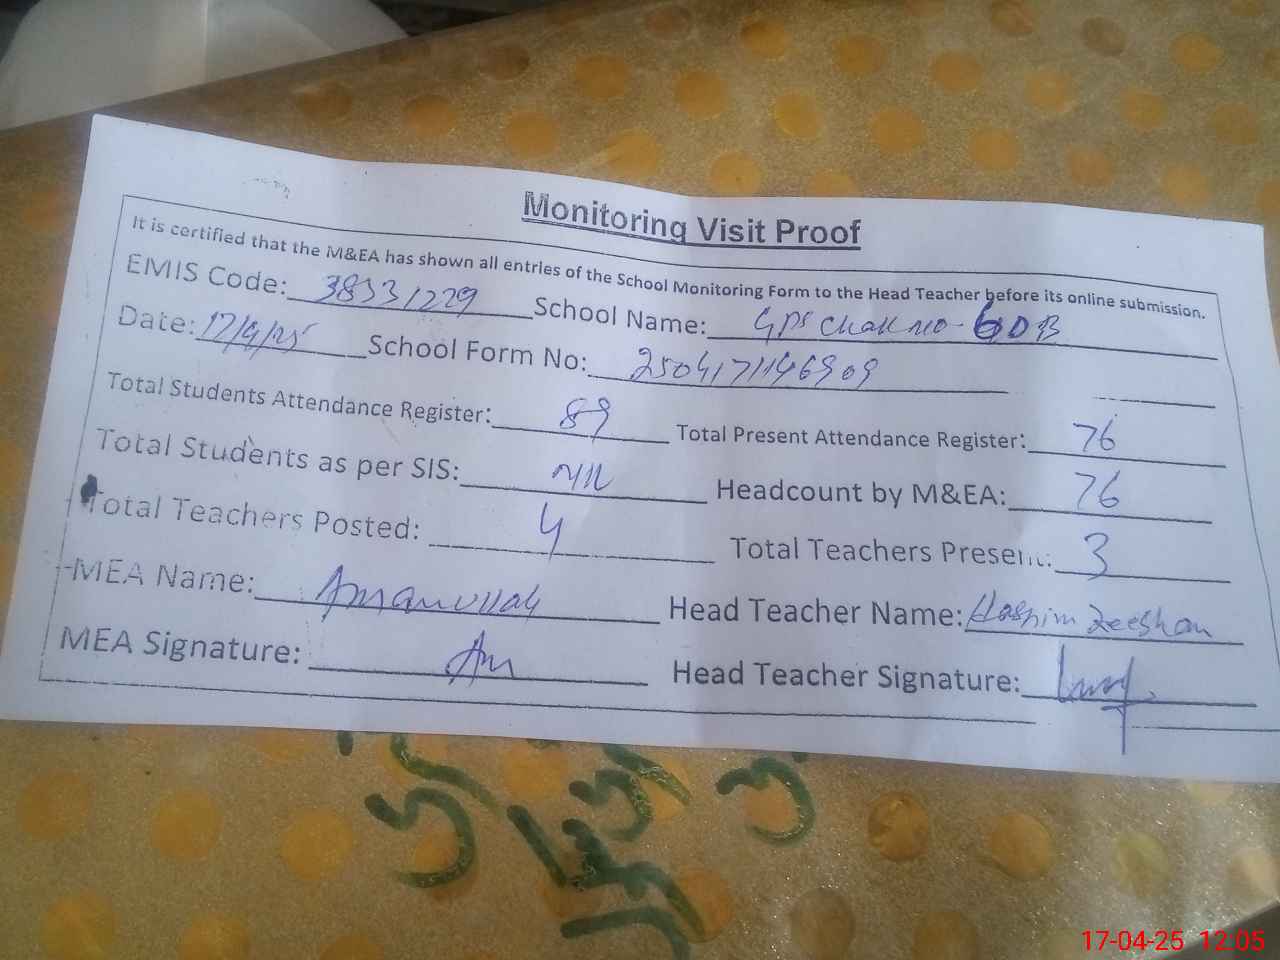 Monitoring Visit Proof
It is certified that the M&EA has shown all entries of the School Monitoring Form to the Head Teacher before its online submission.
EMIS Code: 38331229 School Name: GPS Chak no- 60 DB
Date: 17/4/25 School Form No: 2504171146909
Total Students Attendance Register: 89 Total Present Attendance Register: 76
Total Students as per SIS: Nil Headcount by M&EA: 76
Total Teachers Posted: 4 Total Teachers Present: 3
MEA Name: Amanullah Head Teacher Name: Hashim Zeeshan
MEA Signature: Am Head Teacher Signature:
17-04-25 12:05